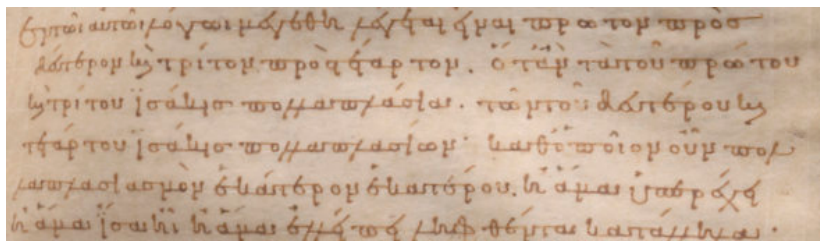 ἐν τῶι αὐτῶι λόγωι μεγέθη λέγεται εἶναι πρῶτον πρὸς
δεύτερον καὶ τρίτον πρὸς τέταρτον. ὅταν τὰ τοῦ πρώτου
καὶ τρίτου ἰσάκις πολλαπλάσια. τῶν τοῦ δευτέρου καὶ
τετάρτου ἰσάκις πολλαπλασίων· καθ' ὁποῖον οὖν πολ
λαπλασιασμὸν ἑκάτερον ἑκατέρου. ἢ ἅμα ὑπερέχη
ἢ ἅμα ἴσα ἦι ἢ ἅμα ἐλλείπη ληφθέντα κατάλληλα·